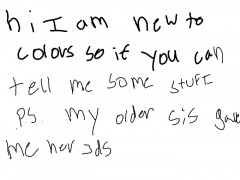 hi I am new to
colors so if you can
tell me some stuff
p.s. my older sis gave
me her 3ds